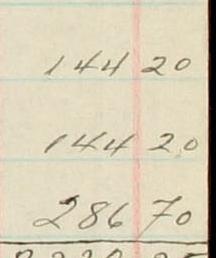 144 20
144 20
286 70